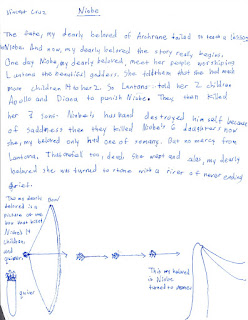 Vincent Cruz
Niobe
The fate, my dearly beloved of Arachane failed to teach a lesson
to Niobe. And now, my dearly beloved the story really begins.
One day Niobe, my dearly beloved, meet her people worshiping
Lantona the beautiful goddess. She told them that she had much
more children 14 to her 2. So Lantona told her 2 children
Apollo and Diana to punish Niobe. They then killed
her 7 sons. Niobe's husband destroyed him self because
of saddness then they killed Niobe's 6 daughters now
she, my beloved only had one of so many. But no mercy from
Lantona. This one fall too, dead. She wept and also, my dearly
beloved she was turned to stone with a river of never ending
grief.
This my dearly
beloved is a
picture of the
bow that killed
Niobe's 14
children,
and
quiver.
Bow
quiver
This my beloved
is Niobe
turned to stone